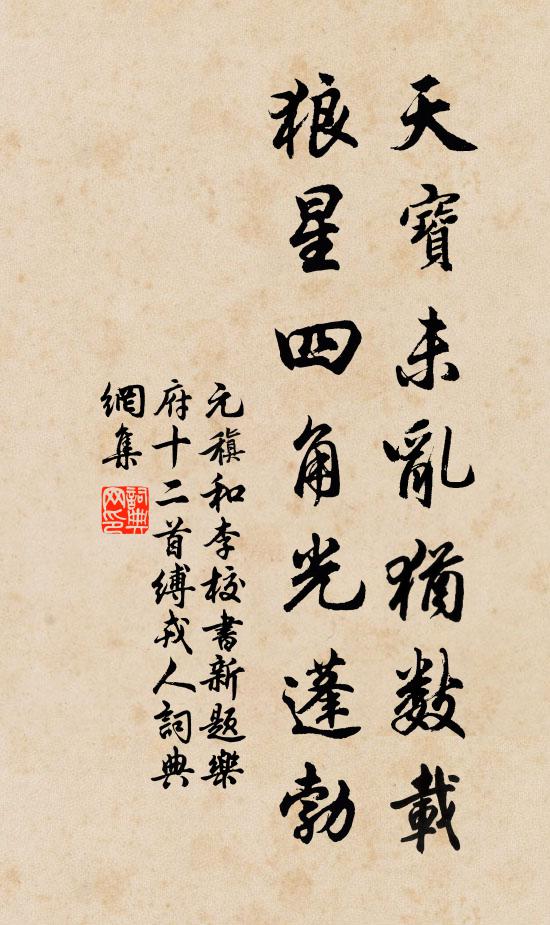 天寶未亂猶數載
狼星四角光蓬勃
元稹和李校書新題樂
府十二首縛戎人詞典
網集
詞典
网印